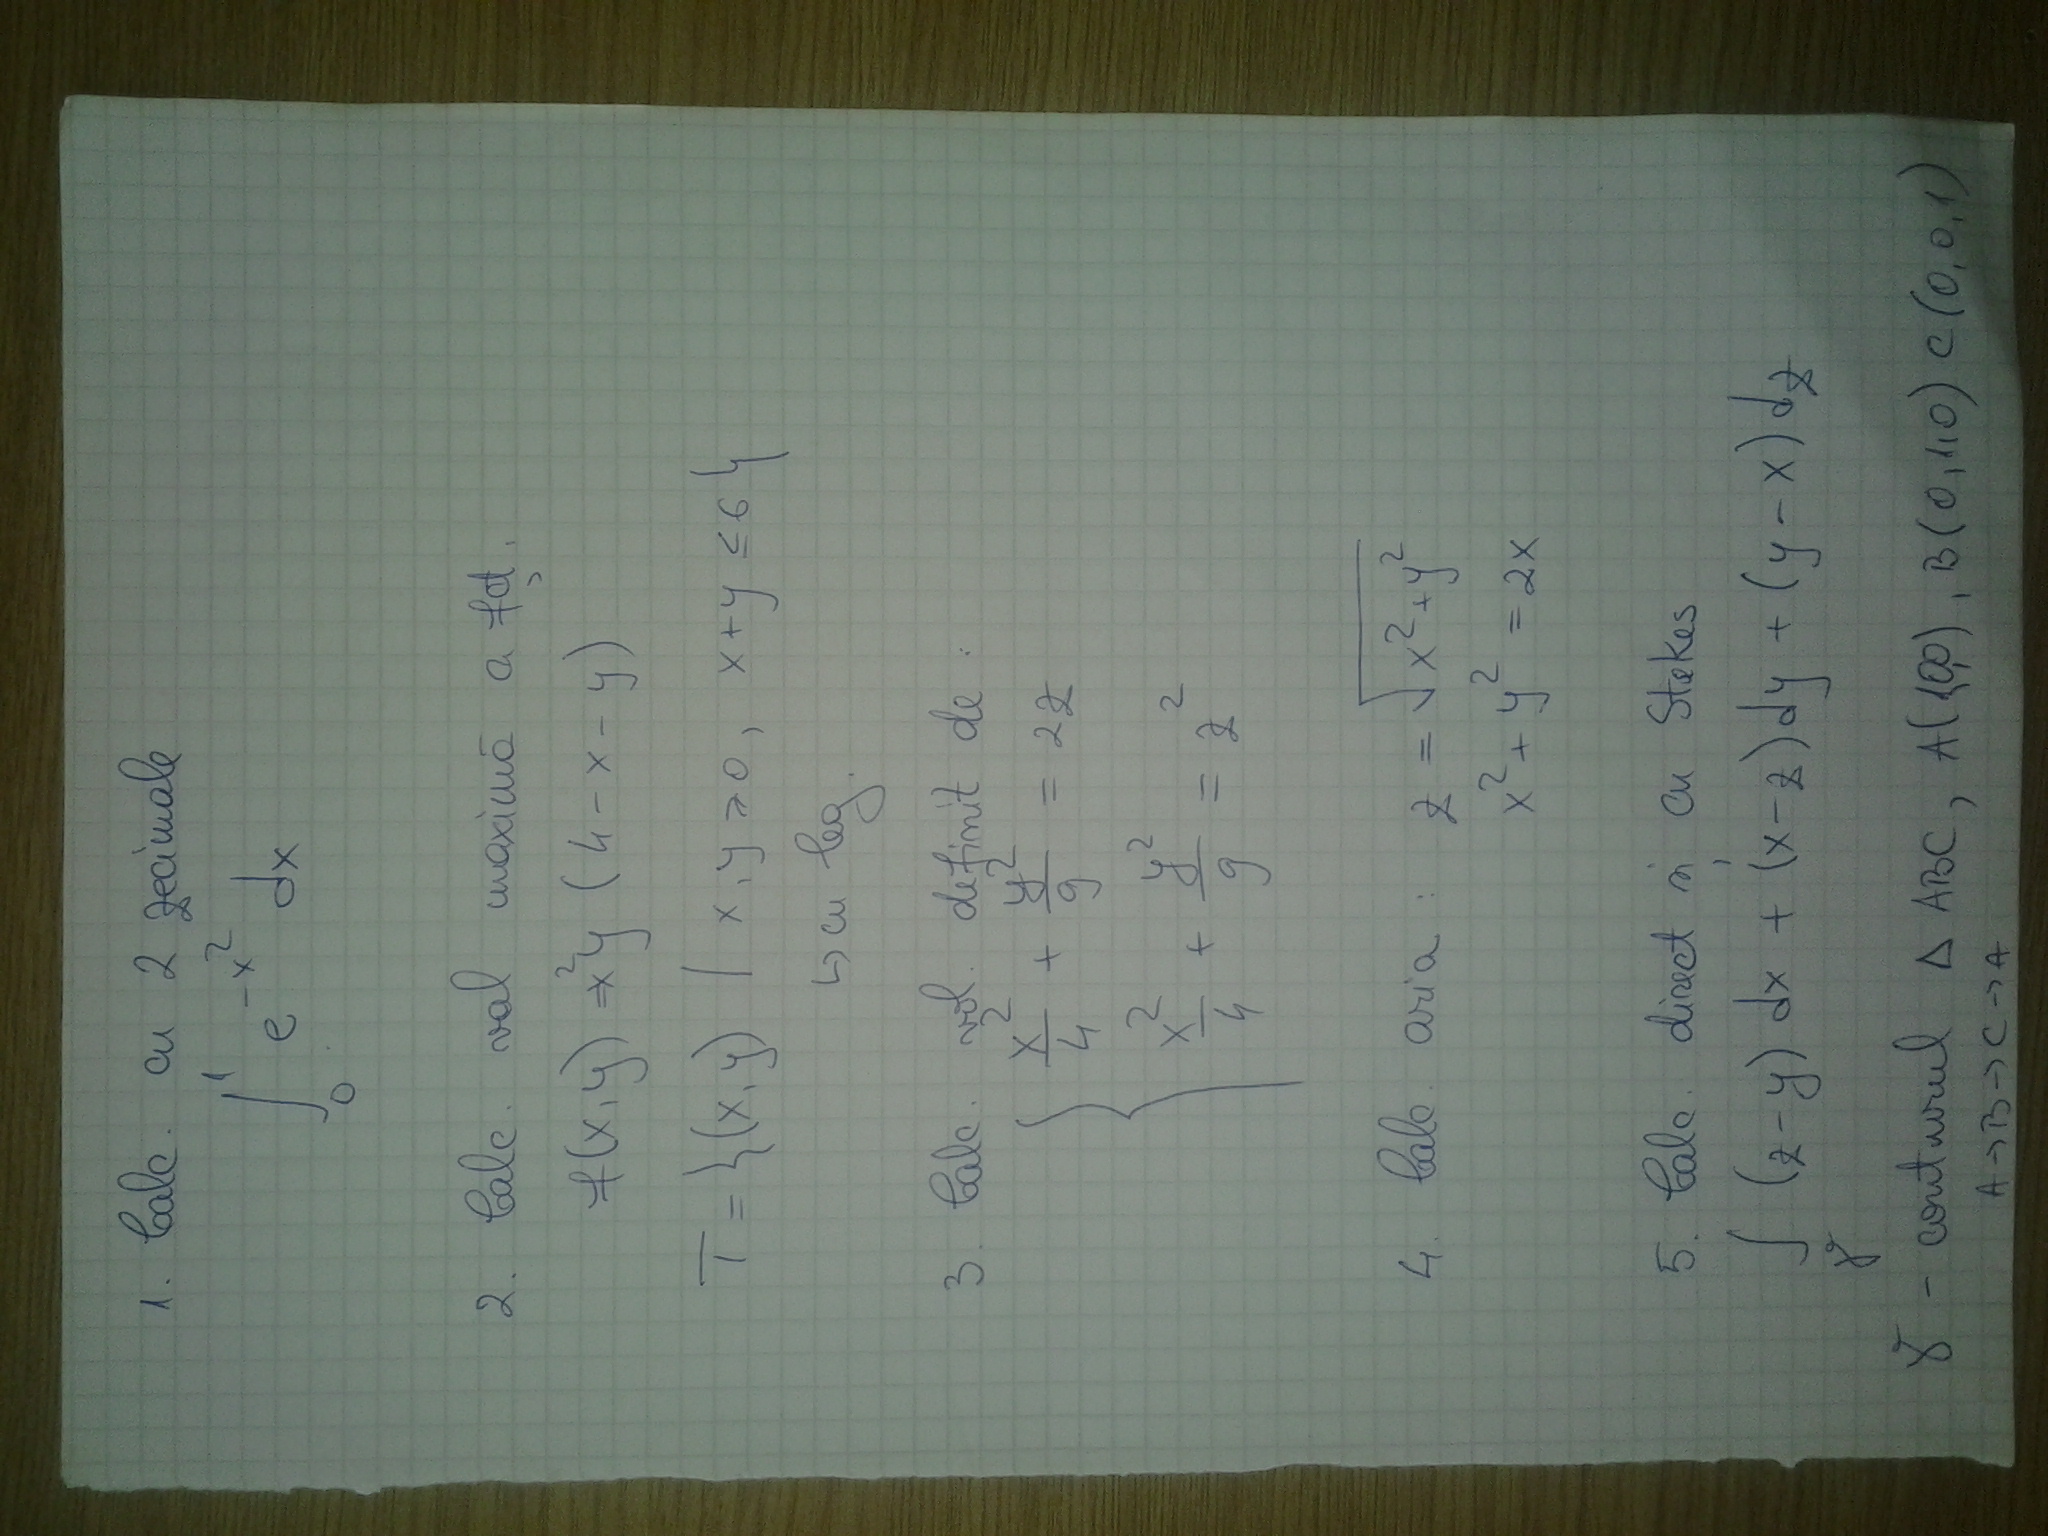 1. Calc. cu 2 zecimale
∫₀¹ e^(-x²) dx
2. Calc. val maximă a fct.
f(x,y) = x²y (4-x-y)
T = {(x,y) | x,y ≥ 0, x+y ≤ 6}
↳ cu leg.
3. Calc. vol. definit de :
x²/4 + y²/9 = 2z
x²/4 + y²/9 = z²
4. Calc. aria : z = √(x²+y²)
x² + y² = 2x
5. Calc. direct și cu Stokes
∫_γ (z-y) dx + (x-z) dy + (y-x) dz
γ - conturul Δ ABC, A(1,0,0), B(0,1,0) C(0,0,1)
A→B→C→A